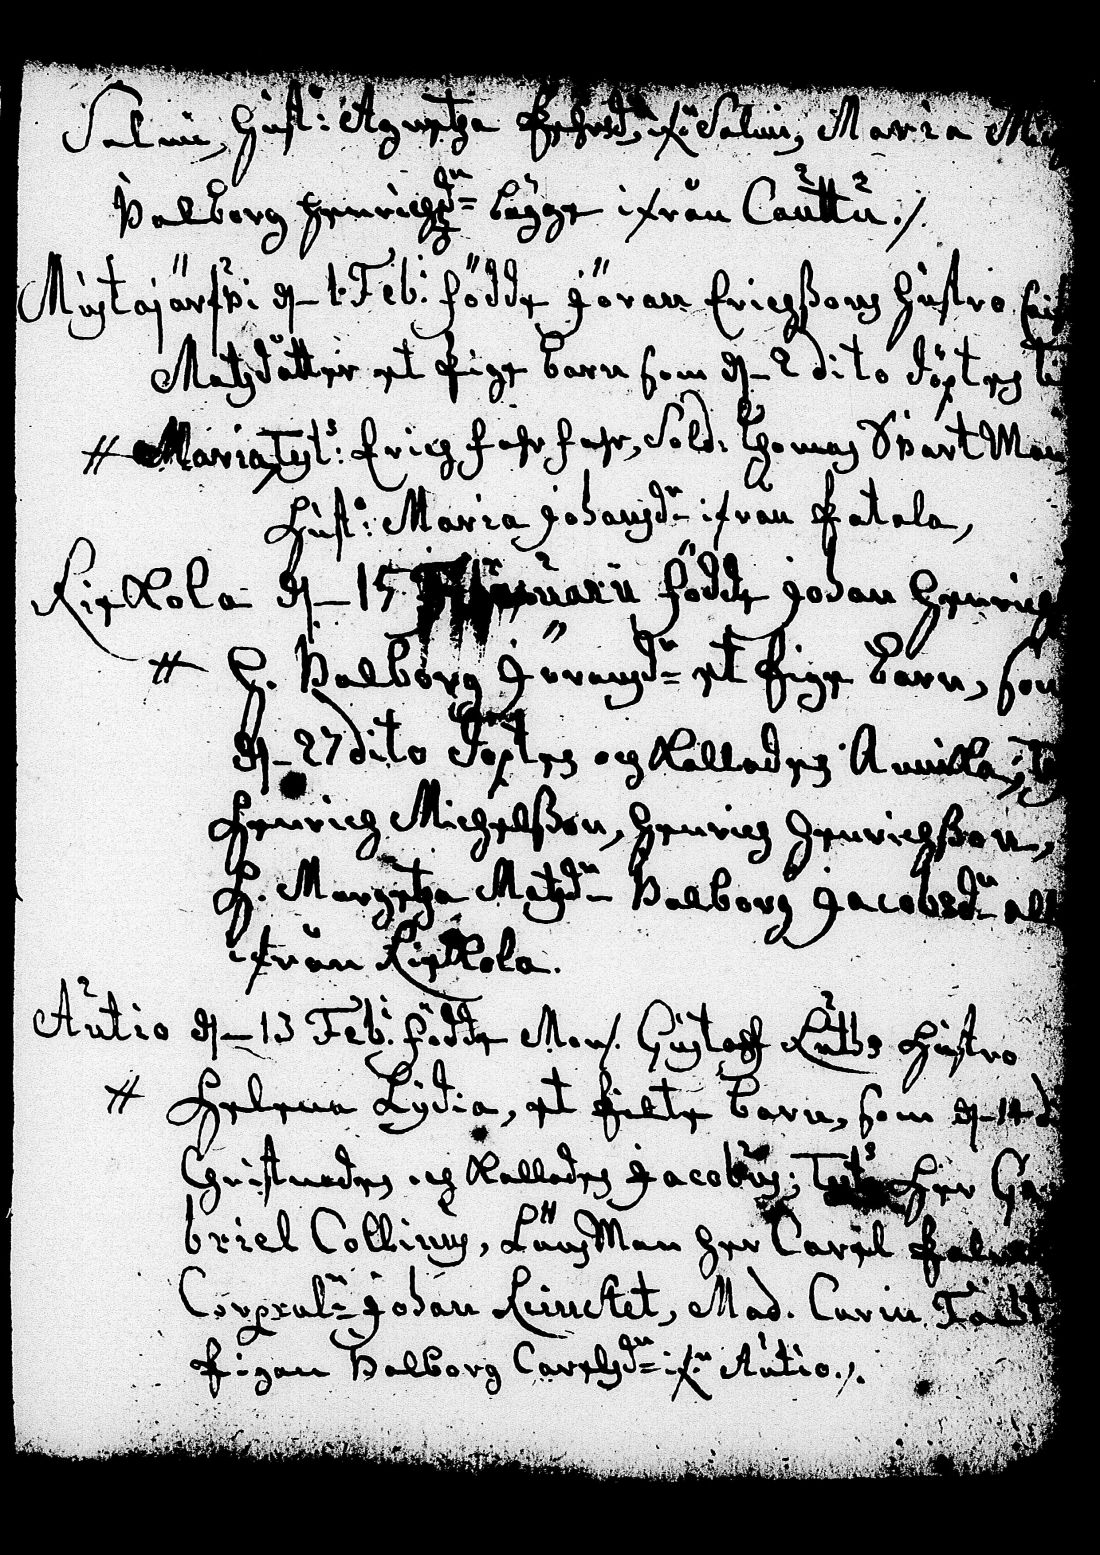 Salmi, Hust: Agnetha if: Salmi, Maria
Valborg Henrichzdn= bägge ifrån Cauttu./.
Mustajärfvi d_ 1. Feb: födde Jöran Ericßons Hustro
Matzdotter et Pige barn som d_ 2 dito döptes
# Maria, Tyt: Erich Pehrßon, Sold: Thomas Svart Man
Hust: Maria Johansdn ifrån Patala,
Kiekkola d_ 15 Januarii födde Johan Henrich
# H. Valborg Jöransdn= et Pige barn, som
d_ 27 dito döptes och kallades Annikka,
Henrich Michelßon, Henrich Henrichßon,
H. Margetha Matzdn_ Valborg Jacobsdn_ all
ifrån Kiekkola.
Autio d_ 13 Feb: födde Mons. Gustaff Hustro
# Helena Lydia, et Pilte barn, som d_ 14
Christnades och kallades Jacobus; Tyt: Her Ga
briel Collinus, Länsman Her Carel
Corporaln= Johan, Mad. Carin
Pigan Valborg Carelsdn= if:n Autio./.